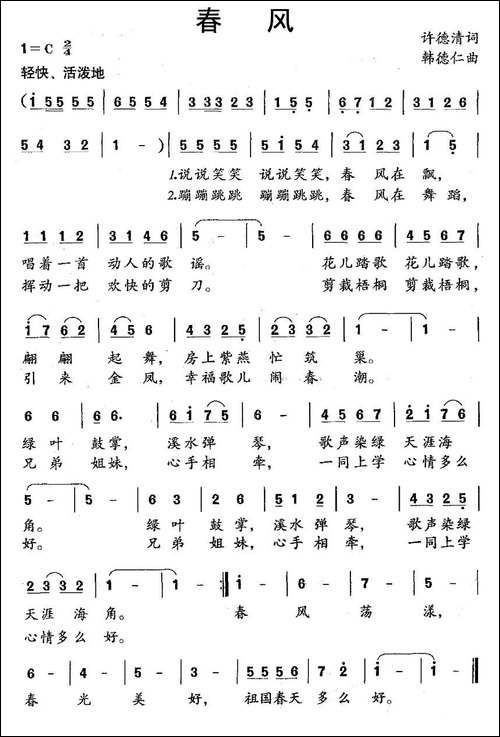 春 风
许德清词
1=C 2/4
韩德仁曲
轻快、活泼地
(i 555 55 | 6554 | 33323 | 1 5 5 | 6 7 1 2 | 3 1 2 3 |
54 32 | 1 - ) | 5555 | 5i54 | 3123 | 1 5 |
1.说说笑笑 说说笑笑, 春 风在 飘,
2.蹦蹦跳跳 蹦蹦跳跳, 春 风在 舞蹈,
1112 | 3146 | 5 - | 5 - | 6666 | 4567 |
唱着一首 动人的歌 谣。 花儿踏歌 花儿踏歌,
挥动一把 欢快的剪 刀。 剪裁梧桐 剪裁梧桐,
i762 | 456 | 4325 | 2323 | 1 - | 1 - |
翩 翩 起 舞, 房上紫燕 忙 筑 巢。
引 来 金 凤, 幸福歌儿 闹 春 潮。
6 6 | 62 6. | 6i75 | 6 - | 5567 | 2i76 |
绿 叶 鼓掌, 溪水弹 琴, 歌声染绿 天涯海
兄 弟 姐妹, 心手相 牵, 一同上学 心情多么
5 - | 5 - | 6 3 | 2 6 | 512 | 3 - | 4325 |
角。 绿 叶 鼓 掌, 溪水 弹 琴, 歌声染绿
好。 兄 弟 姐 妹, 心手 相 牵, 一同上学
2332 | 1 - | 1 - :‖ i - | 6 - | 7 - | 5 - |
天涯 海 角。 春 风 荡 漾,
心情多么 好。
6 - | 4 - | 5 - | 5 - | 5556 | 7 2 | i - | i - ‖
春 光 美 好, 祖国春天 多 么 好。